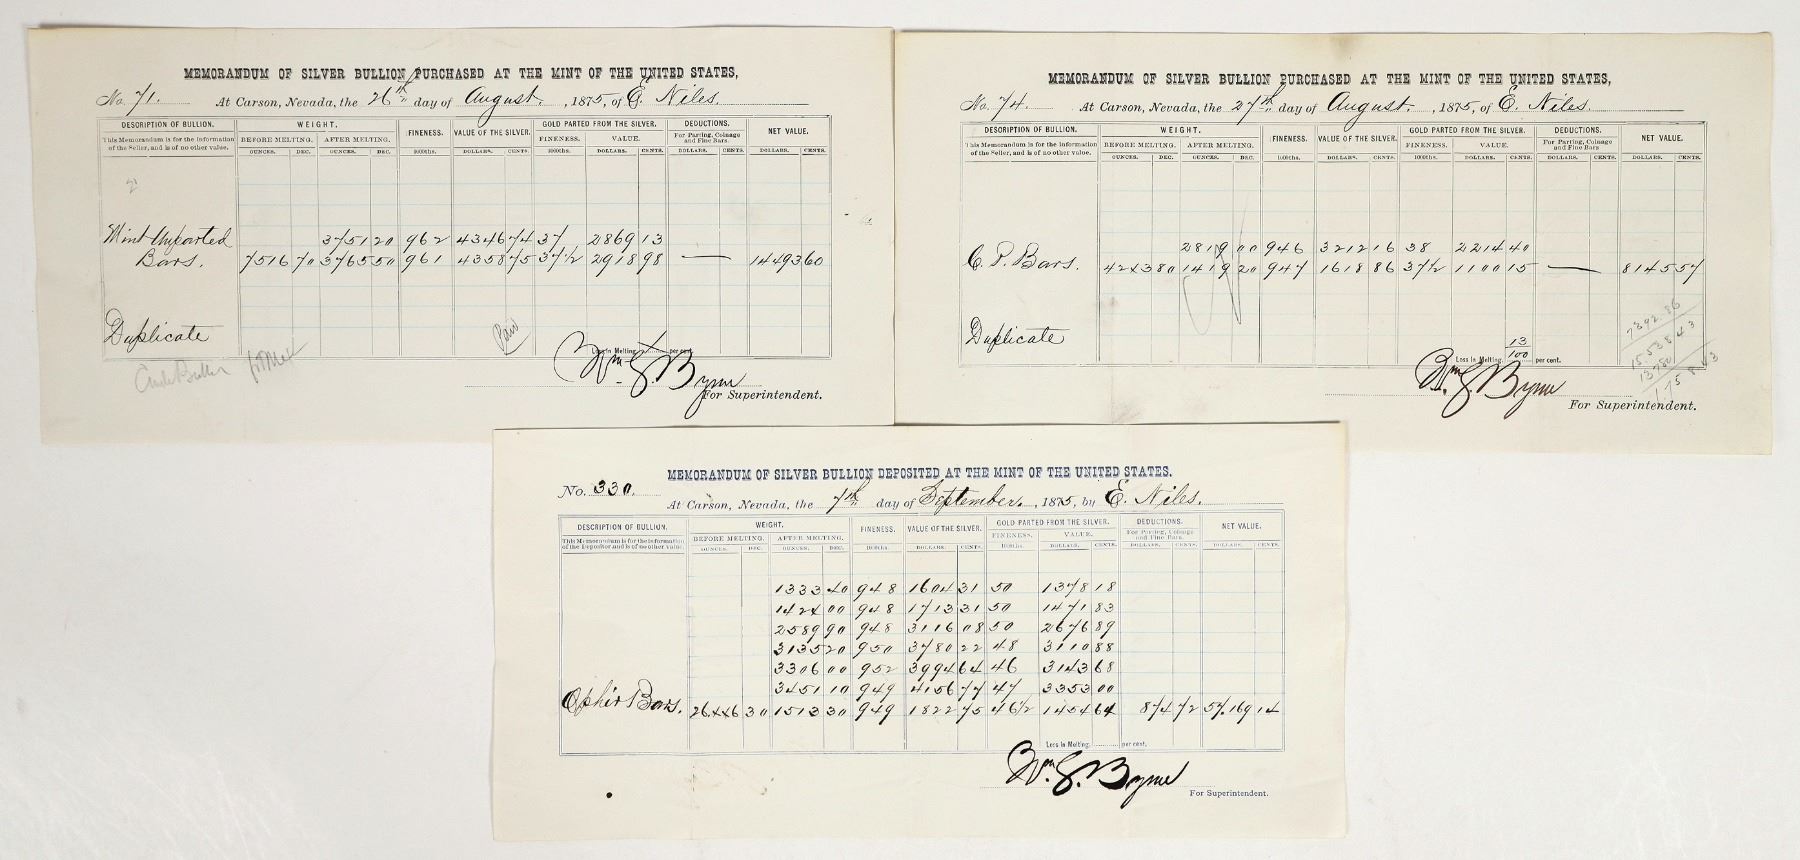 MEMORANDUM OF SILVER BULLION PURCHASED AT THE MINT OF THE UNITED STATES,
No. 71. At Carson, Nevada, the 26th day of August. , 1875, of E. Niles.
DESCRIPTION OF BULLION. WEIGHT. FINENESS. VALUE OF THE SILVER. GOLD PARTED FROM THE SILVER. DEDUCTIONS. NET VALUE.
This Memorandum is for the information of the Seller, and is of no other value. BEFORE MELTING. AFTER MELTING. FINENESS. VALUE. For Parting, Coinage and Fine Bars.
OUNCES. DEC. OUNCES. DEC. 1000ths. DOLLARS. CENTS. 1000ths. DOLLARS. CENTS. DOLLARS. CENTS. DOLLARS. CENTS.
Mint Unparted 3751 20 962 4346 74 37 2869 13
Bars. 7516 70 3765 50 961 4358 75 37 1/2 2918 98 — 14493 60
Duplicate
Paid
Loss in Melting, per cent.
Wm. G. Byrne
For Superintendent.
MEMORANDUM OF SILVER BULLION PURCHASED AT THE MINT OF THE UNITED STATES,
No. 74. At Carson, Nevada, the 27th day of August. , 1875, of E. Niles.
DESCRIPTION OF BULLION. WEIGHT. FINENESS. VALUE OF THE SILVER. GOLD PARTED FROM THE SILVER. DEDUCTIONS. NET VALUE.
This Memorandum is for the information of the Seller, and is of no other value. BEFORE MELTING. AFTER MELTING. FINENESS. VALUE. For Parting, Coinage and Fine Bars.
OUNCES. DEC. OUNCES. DEC. 1000ths. DOLLARS. CENTS. 1000ths. DOLLARS. CENTS. DOLLARS. CENTS. DOLLARS. CENTS.
2819 00 946 3212 16 38 2214 40
C. P. Bars. 4243 80 1419 20 947 1618 86 37 1/2 1100 15 — 8145 57
Duplicate
Loss in Melting, 13/100 per cent.
Wm. G. Byrne
For Superintendent.
MEMORANDUM OF SILVER BULLION DEPOSITED AT THE MINT OF THE UNITED STATES.
No. 330. At Carson, Nevada, the 7th day of September. , 1875, by E. Niles.
DESCRIPTION OF BULLION. WEIGHT. FINENESS. VALUE OF THE SILVER. GOLD PARTED FROM THE SILVER. DEDUCTIONS. NET VALUE.
This Memorandum is for the information of the Depositor and is of no other value. BEFORE MELTING. AFTER MELTING. FINENESS. VALUE. For Parting, Coinage and Fine Bars.
OUNCES. DEC. OUNCES. DEC. 1000ths. DOLLARS. CENTS. 1000ths. DOLLARS. CENTS. DOLLARS. CENTS. DOLLARS. CENTS.
1333 40 948 1604 31 50 1378 18
1424 00 948 1713 31 50 1471 83
2589 90 948 3116 08 50 2676 89
3135 20 950 3780 22 48 3110 88
3306 00 952 3994 64 46 3143 68
3451 10 949 4156 77 47 3353 00
Ophir Bars. 26446 30 1513 30 949 1822 75 46 1/2 1454 64 874 72 57,169 14
Loss in Melting, per cent.
Wm. G. Byrne
For Superintendent.